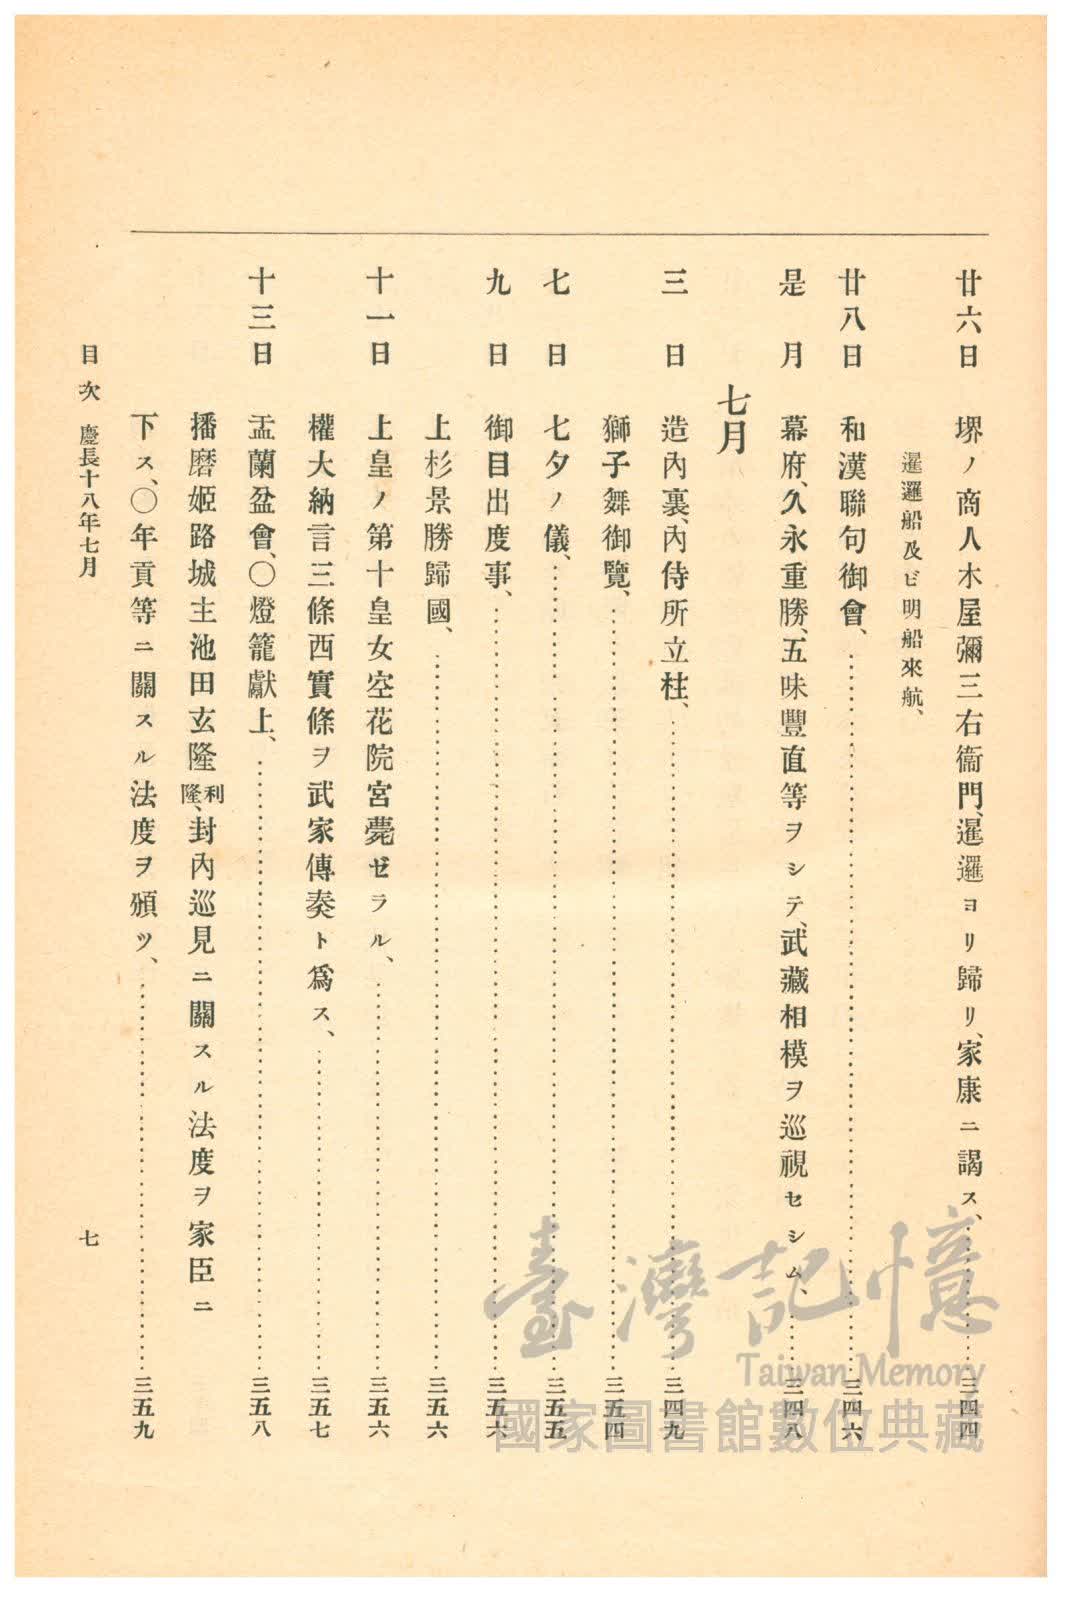 廿六日 堺ノ商人木屋彌三右衞門、暹邏ヨリ歸リ、家康ニ謁ス、……三四四
暹邏船及ビ明船來航、
廿八日 和漢聯句御會、……三四六
是月 幕府、久永重勝、五味豐直等ヲシテ、武藏相模ヲ巡視セシム、……三四八
七月
三日 造內裏、內侍所立柱、……三四九
獅子舞御覽、……三五四
七日 七夕ノ儀、……三五五
九日 御目出度事、……三五六
上杉景勝歸國、……三五六
十一日 上皇ノ第十皇女空花院宮薨ゼラル、……三五六
權大納言三條西實條ヲ武家傳奏ト爲ス、……三五七
十三日 盂蘭盆會、〇燈籠獻上、……三五八
播磨姬路城主池田玄隆利隆、封內巡見ニ關スル法度ヲ家臣ニ
下ス、〇年貢等ニ關スル法度ヲ頒ツ、……三五九
目次 慶長十八年七月 七
臺灣記憶
Taiwan Memory
國家圖書館數位典藏